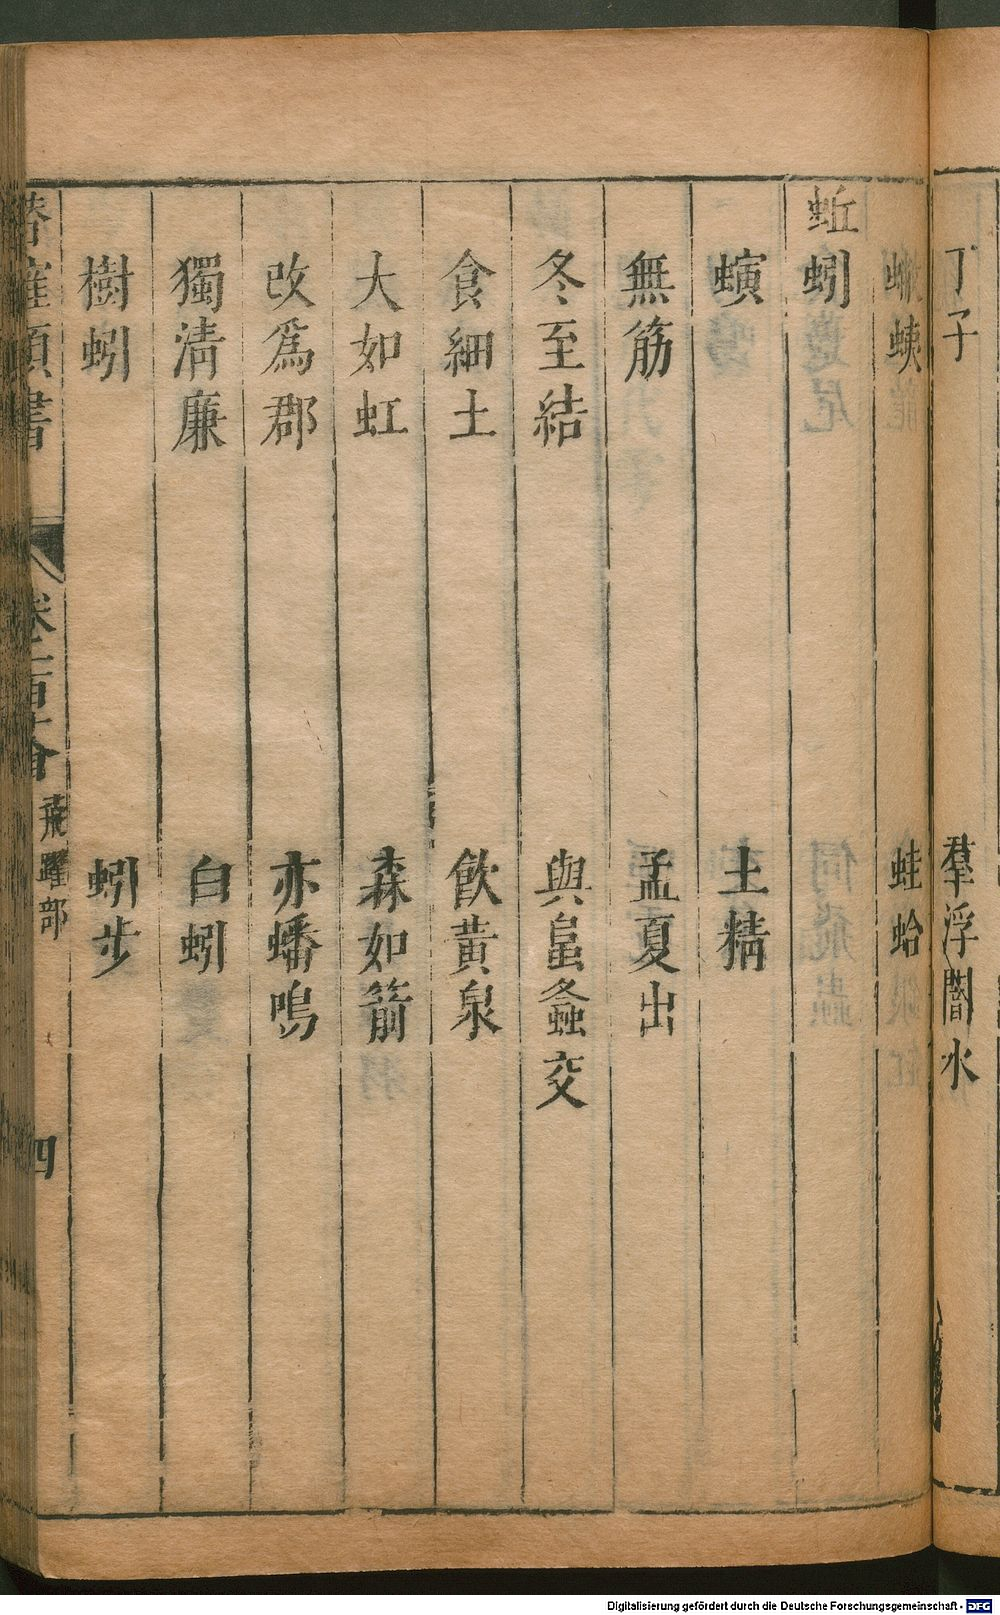 丁子 羣浮闇水
蛙蛤
蚯蚓
螾 土精
無筋 孟夏出
冬至結 與䘀螽交
食細土 飲黃泉
大如虹 森如箭
改爲郡 亦蟠鳴
獨清廉 白蚓
樹蚓 蚓步
飛躍部
四
Digitalisierung gefördert durch die Deutsche Forschungsgemeinschaft - DFG